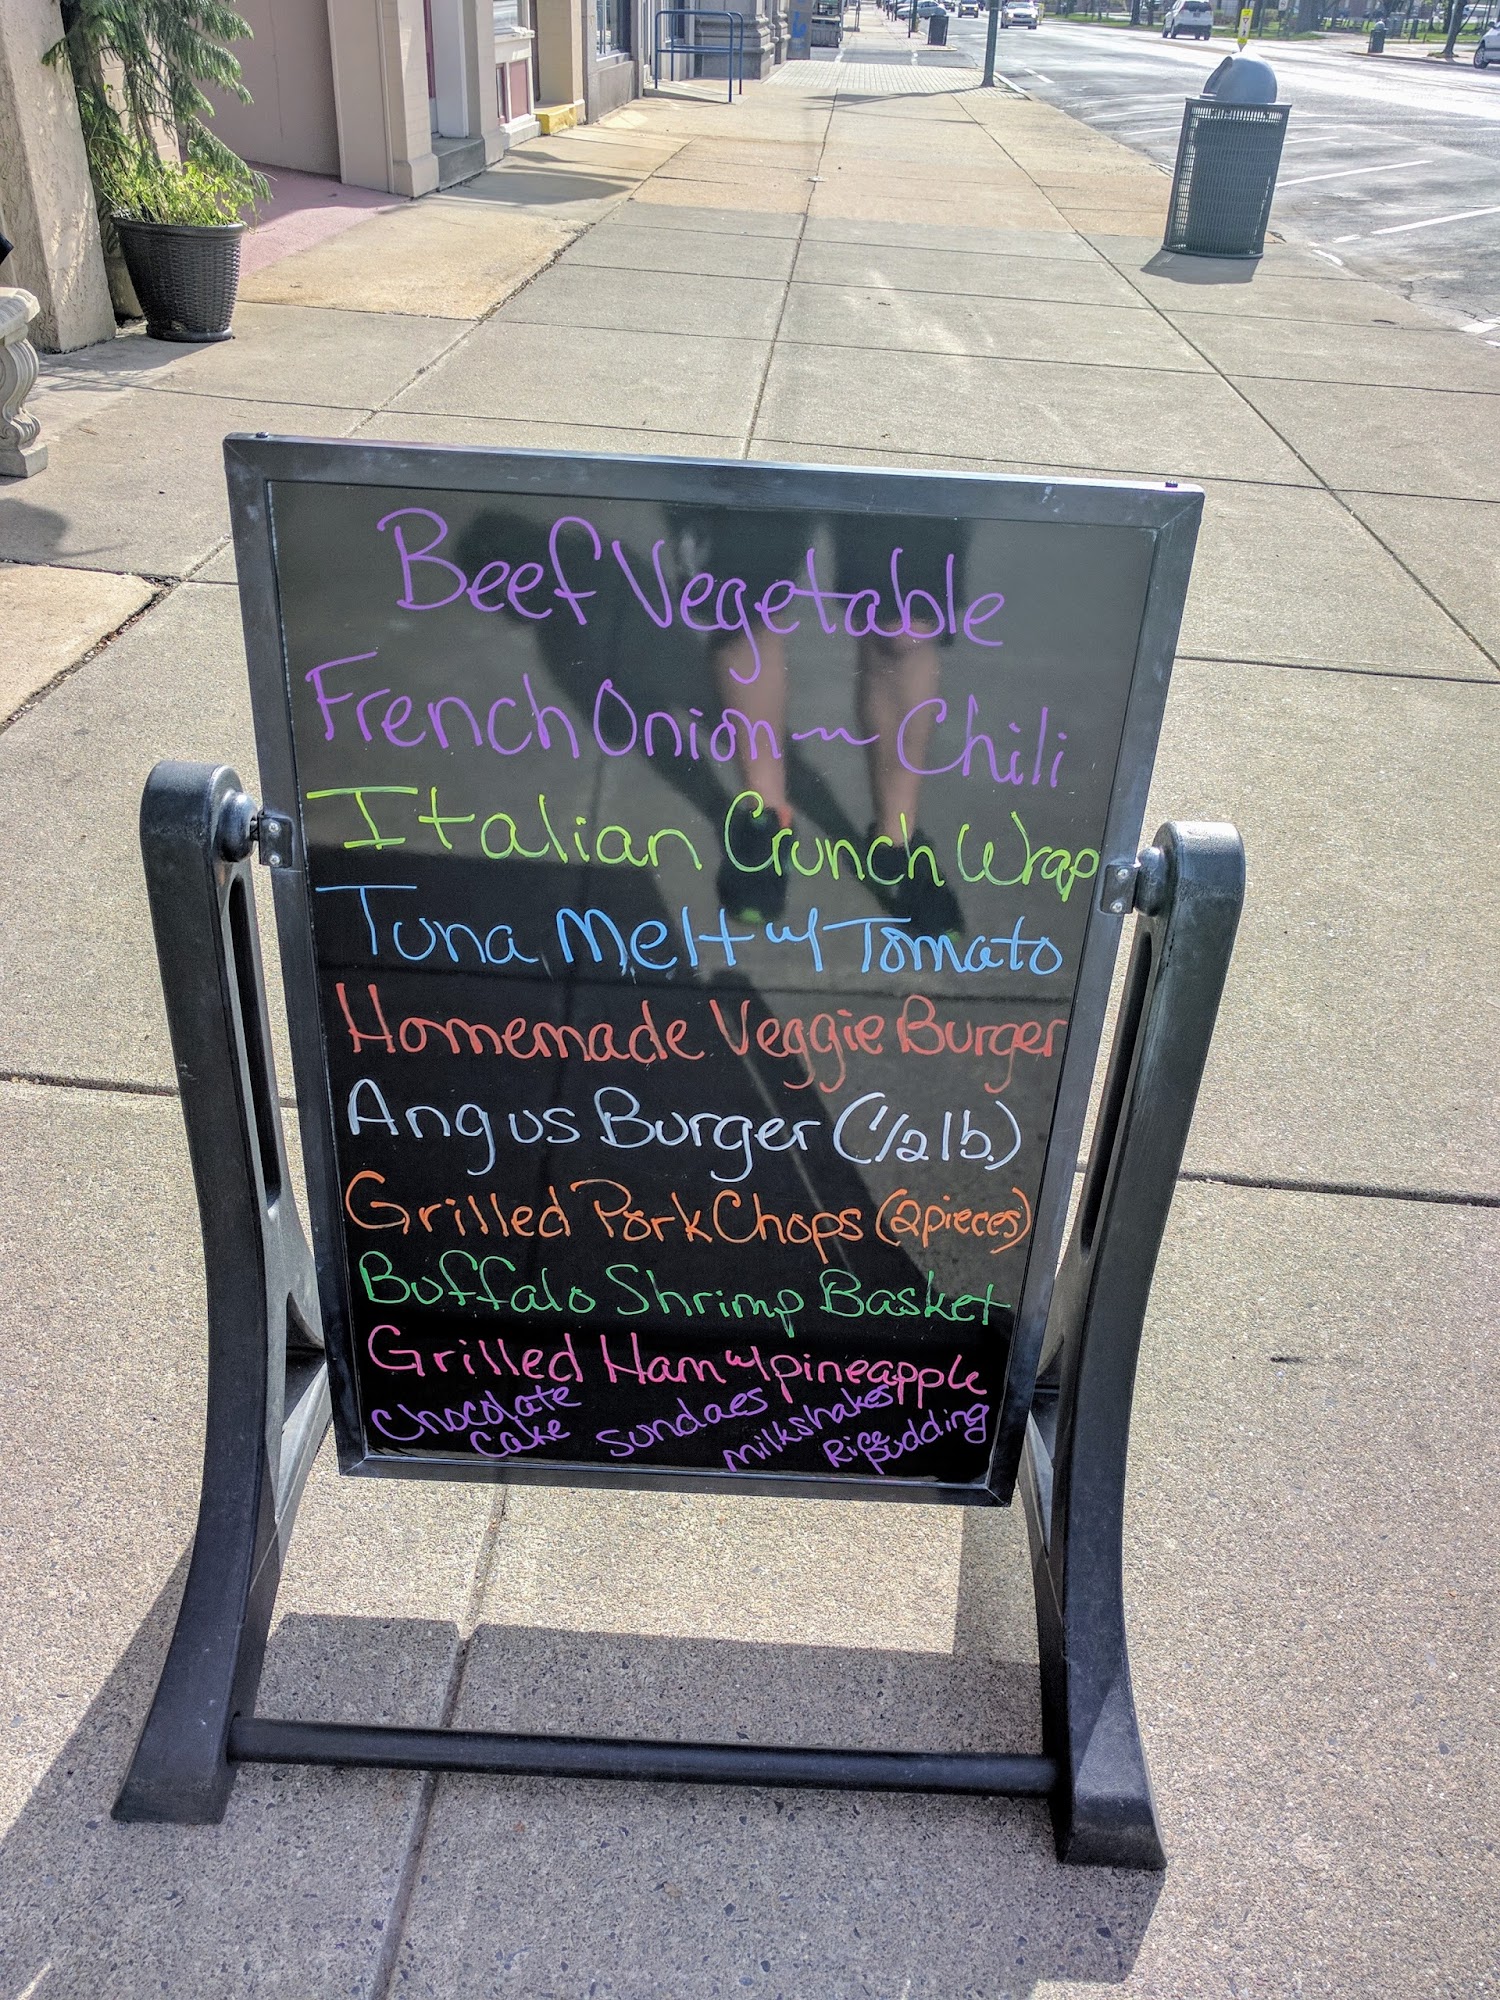 Beef Vegetable
French Onion ~ Chili
Italian Crunch Wrap
Tuna Melt w/ Tomato
Homemade Veggie Burger
Angus Burger (1/2 lb.)
Grilled Pork Chops (2 pieces)
Buffalo Shrimp Basket
Grilled Ham w/ pineapple
Chocolate
Cake
Sundaes
Milkshakes
Rice pudding